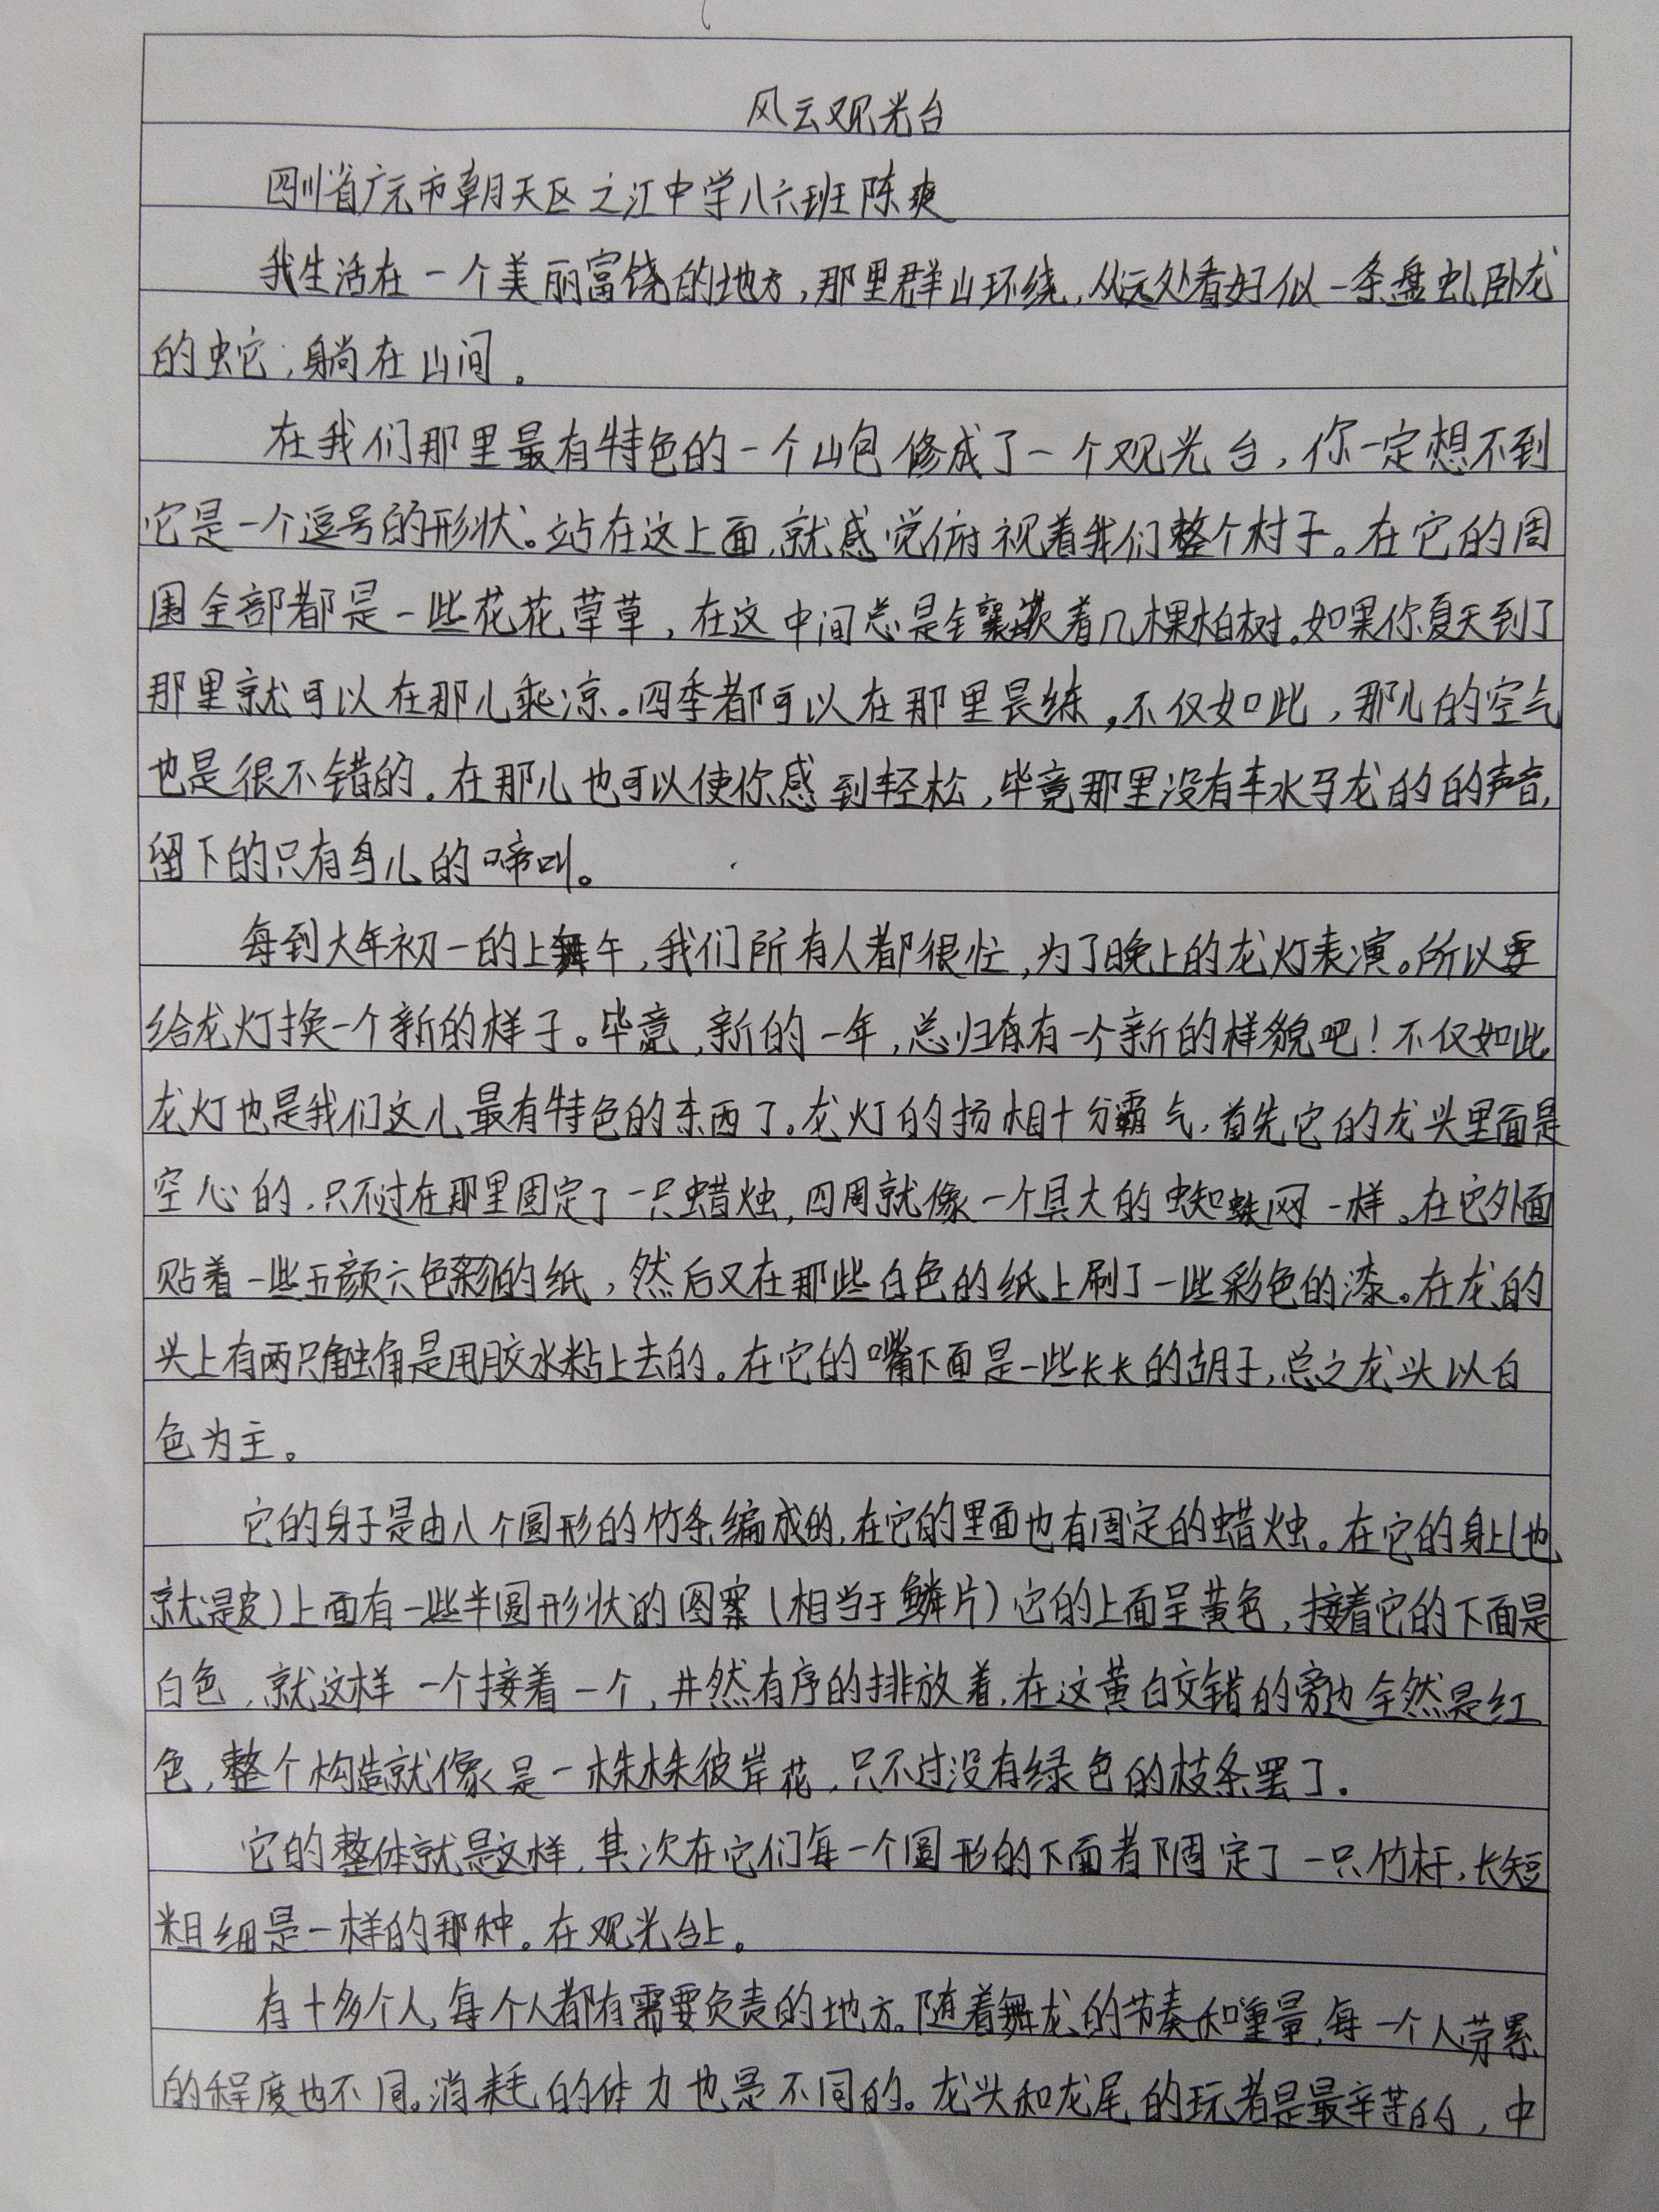 风云观光台
四川省广元市朝天区之江中学八六班陈爽
我生活在一个美丽富饶的地方,那里群山环绕,从远处看好似一条盘虬卧龙
的蛇,躺在山间。
在我们那里最有特色的一个山包修成了一个观光台,你一定想不到
它是一个逗号的形状。站在这上面,就感觉俯视着我们整个村子。在它的周
围全部都是一些花花草草,在这中间总是镶嵌着几棵柏树。如果你夏天到了
那里就可以在那儿乘凉。四季都可以在那里晨练。不仅如此,那儿的空气
也是很不错的。在那儿也可以使你感到轻松,毕竟那里没有车水马龙的的声音,
留下的只有鸟儿的啼叫。
每到大年初一的上午,我们所有人都很忙,为了晚上的龙灯表演。所以要
给龙灯换一个新的样子。毕竟,新的一年,总归有一个新的样貌吧!不仅如此,
龙灯也是我们这儿最有特色的东西了。龙灯的扬相十分霸气,首先它的龙头里面是
空心的,只不过在那里固定了一只蜡烛,四周就像一个具大的蜘蛛网一样。在它外面
贴着一些五颜六色的纸,然后又在那些白色的纸上刷了一些彩色的漆。在龙的
头上有两只触角是用胶水粘上去的。在它的嘴下面是一些长长的胡子,总之龙头以白
色为主。
它的身子是由八个圆形的竹条编成的,在它的里面也有固定的蜡烛。在它的身上(也
就是皮)上面有一些半圆形状的图案(相当于鳞片)它的上面呈黄色,接着它的下面是
白色,就这样一个接着一个,井然有序的排放着,在这黄白交错的旁边全然是红
色,整个构造就像是一株株彼岸花,只不过没有绿色的枝条罢了。
它的整体就是这样,其次在它们每一个圆形的下面都固定了一只竹杆,长短
粗细是一样的那种。在观光台上。
有十多个人,每个人都有需要负责的地方。随着舞龙的节奏和重量,每一个人劳累
的程度也不同。消耗的体力也是不同的。龙头和龙尾的玩者是最辛苦的,中